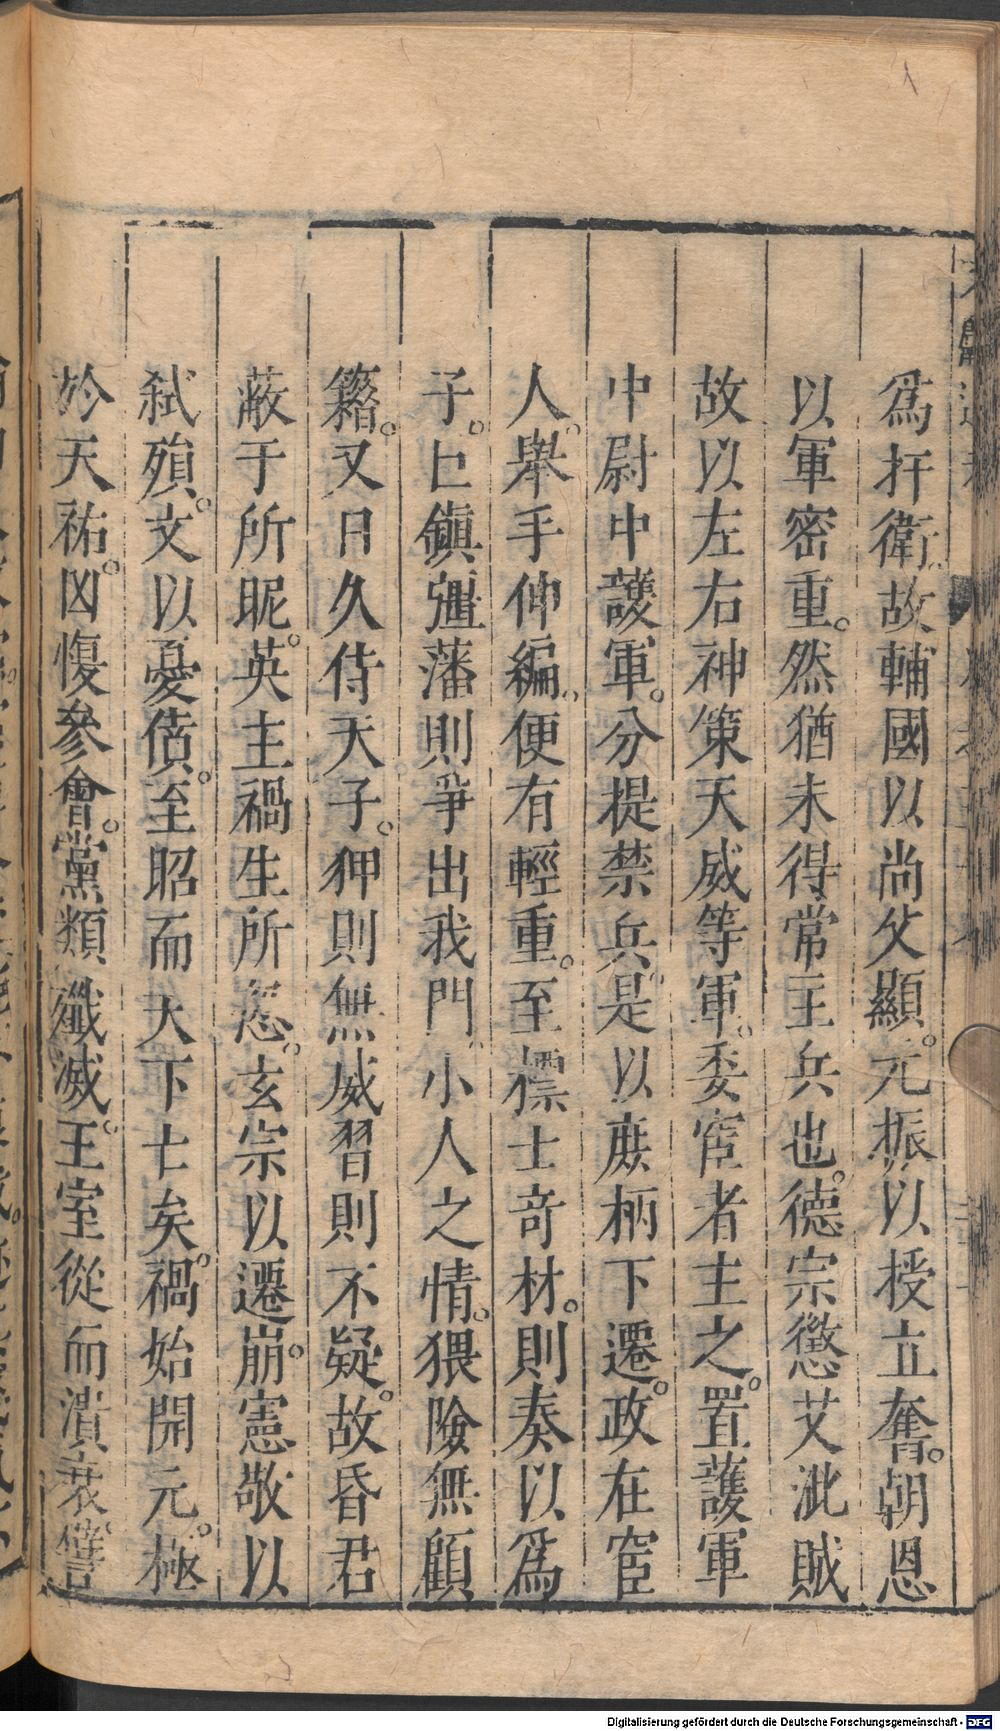 爲扞衛故輔國以尚父顯。元振以授立奮。朝恩
以軍密重。然猶未得常主兵也。德宗懲艾泚賊
故以左右神策天威等軍。委宦者主之。置護軍
中尉中護軍。分提禁兵。是以庻柄下遷。政在宦
人。舉手伸縮。便有輕重。至慓士竒材。則奏以爲
子。巨鎮彊藩則爭出我門。小人之情。猥險無顧
籍。又日久侍天子。狎則無威習則不疑。故昏君
蔽于所昵。英主禍生所忽。玄宗以遷崩。憲敬以
弑殞。文以憂僨。至昭而天下亡矣。禍始開元。極
於天祐。凶愎參會。黨類殲滅。王室從而潰䘮。譬
Digitalisierung gefördert durch die Deutsche Forschungsgemeinschaft - DFG